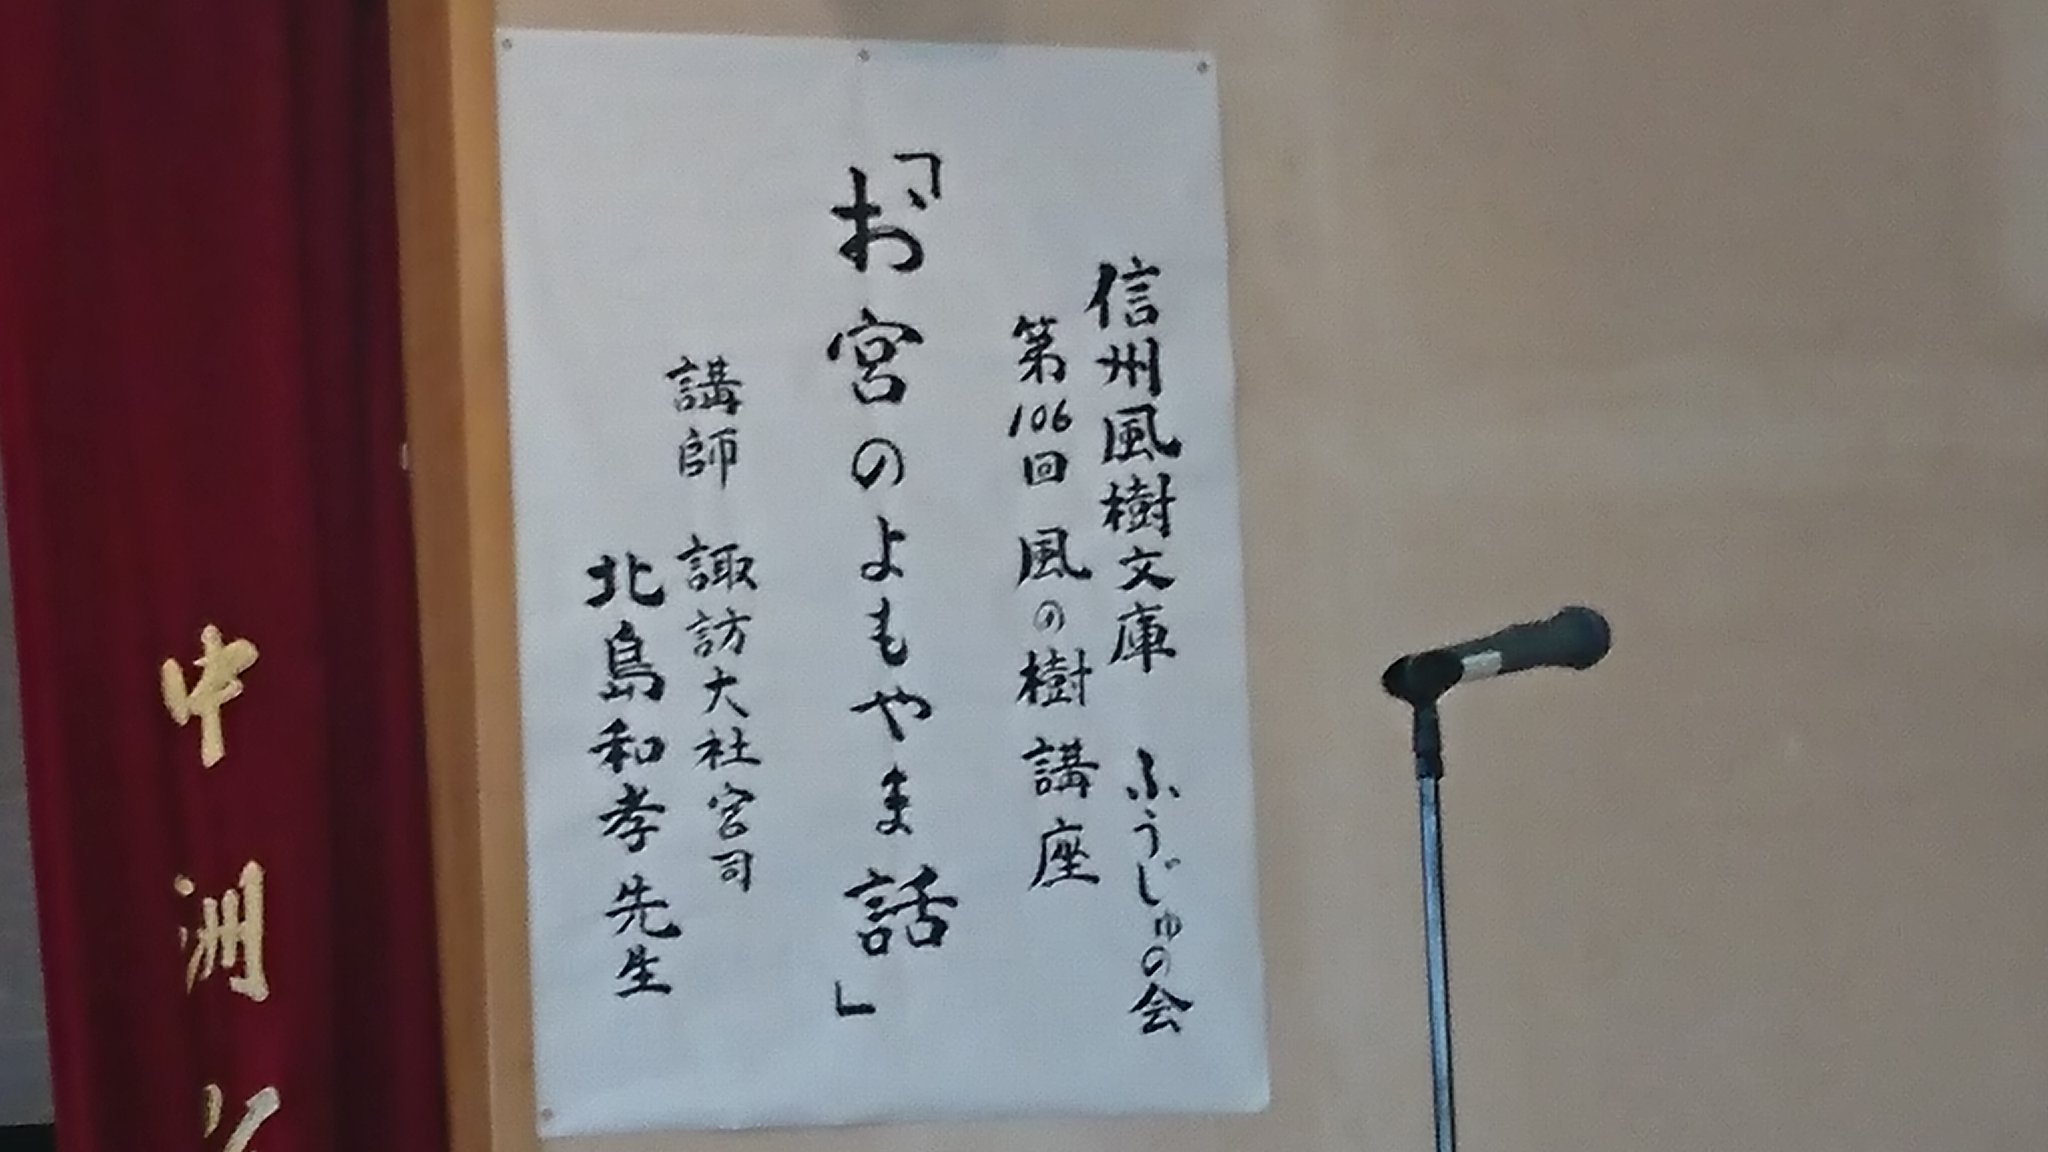 信州風樹文庫 ふうじゅの会
第106回 風の樹講座
「お宮のよもやま話」
講師 諏訪大社宮司
北島和孝先生
中洲